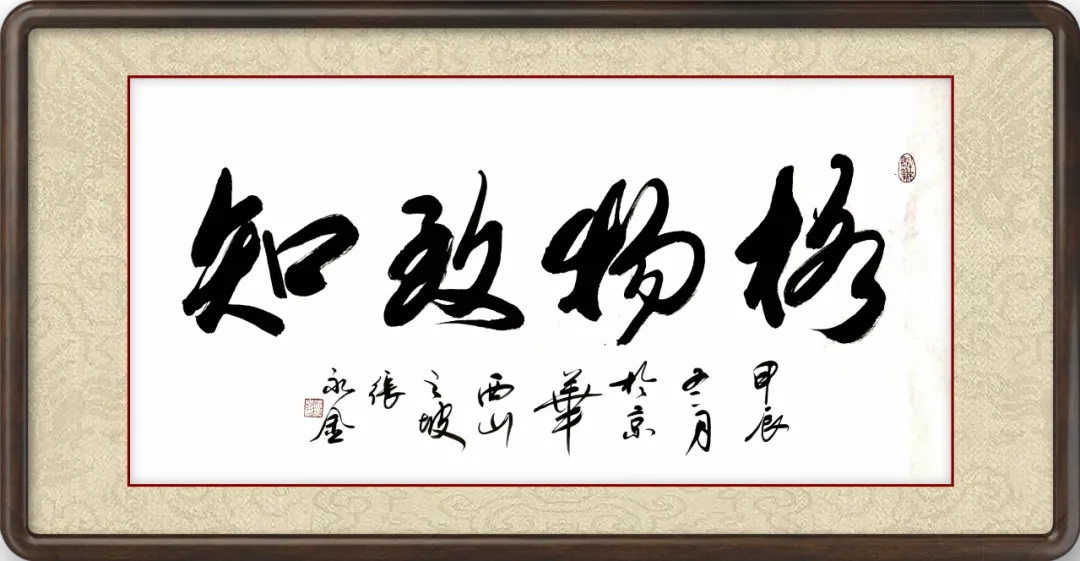 格物致知
甲辰
五月
於京
華
西山
之坡
張
永金